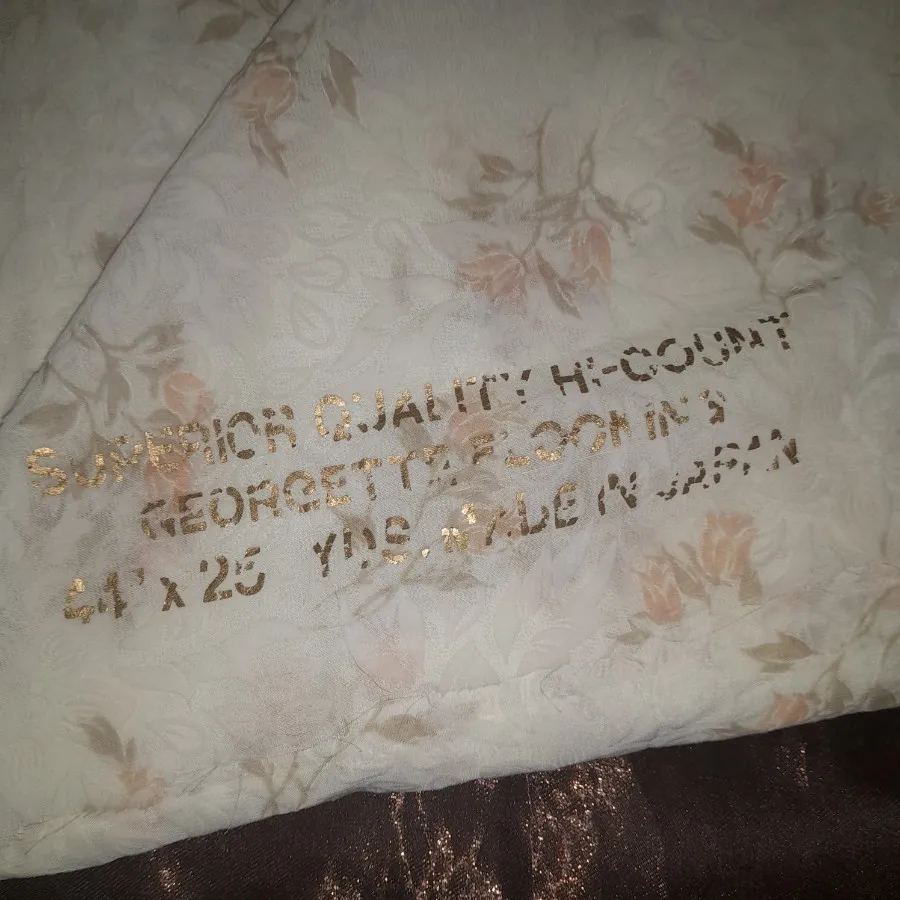 SUPERIOR QUALITY HI-COUNT
GEORGETTE FLOCKING
44" x 25 YDS. MADE IN JAPAN